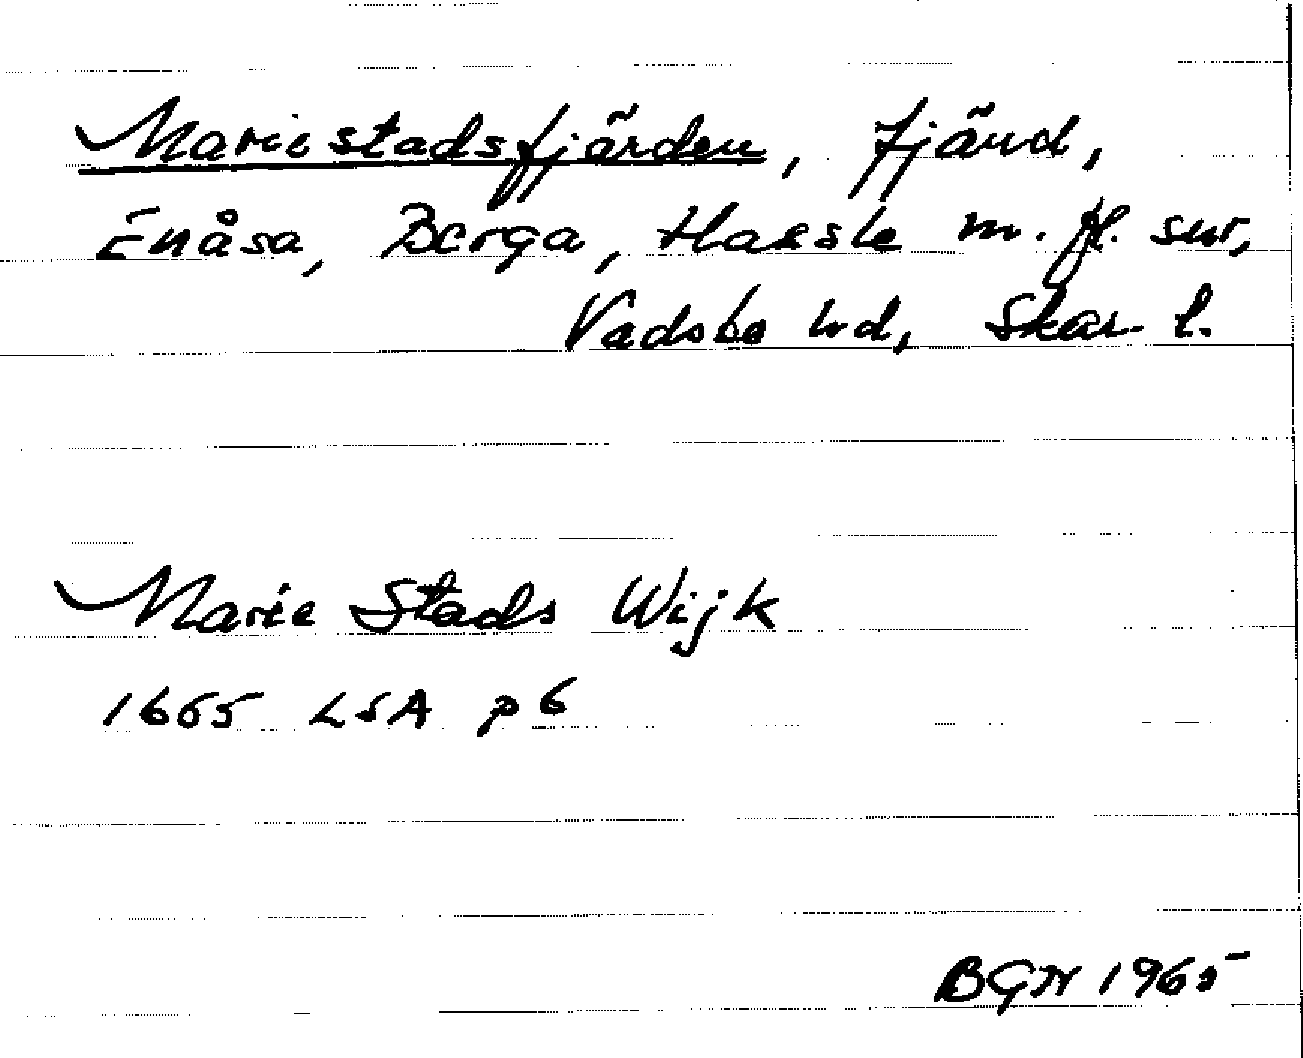 Mariestadsfjärden, fjärd,
Enåsa, Berga, Hassle m. fl. snr,
Vadsbo hd, Skar. l.
Marie Stads Wijk
1665 LSA p 6
BGN 1965